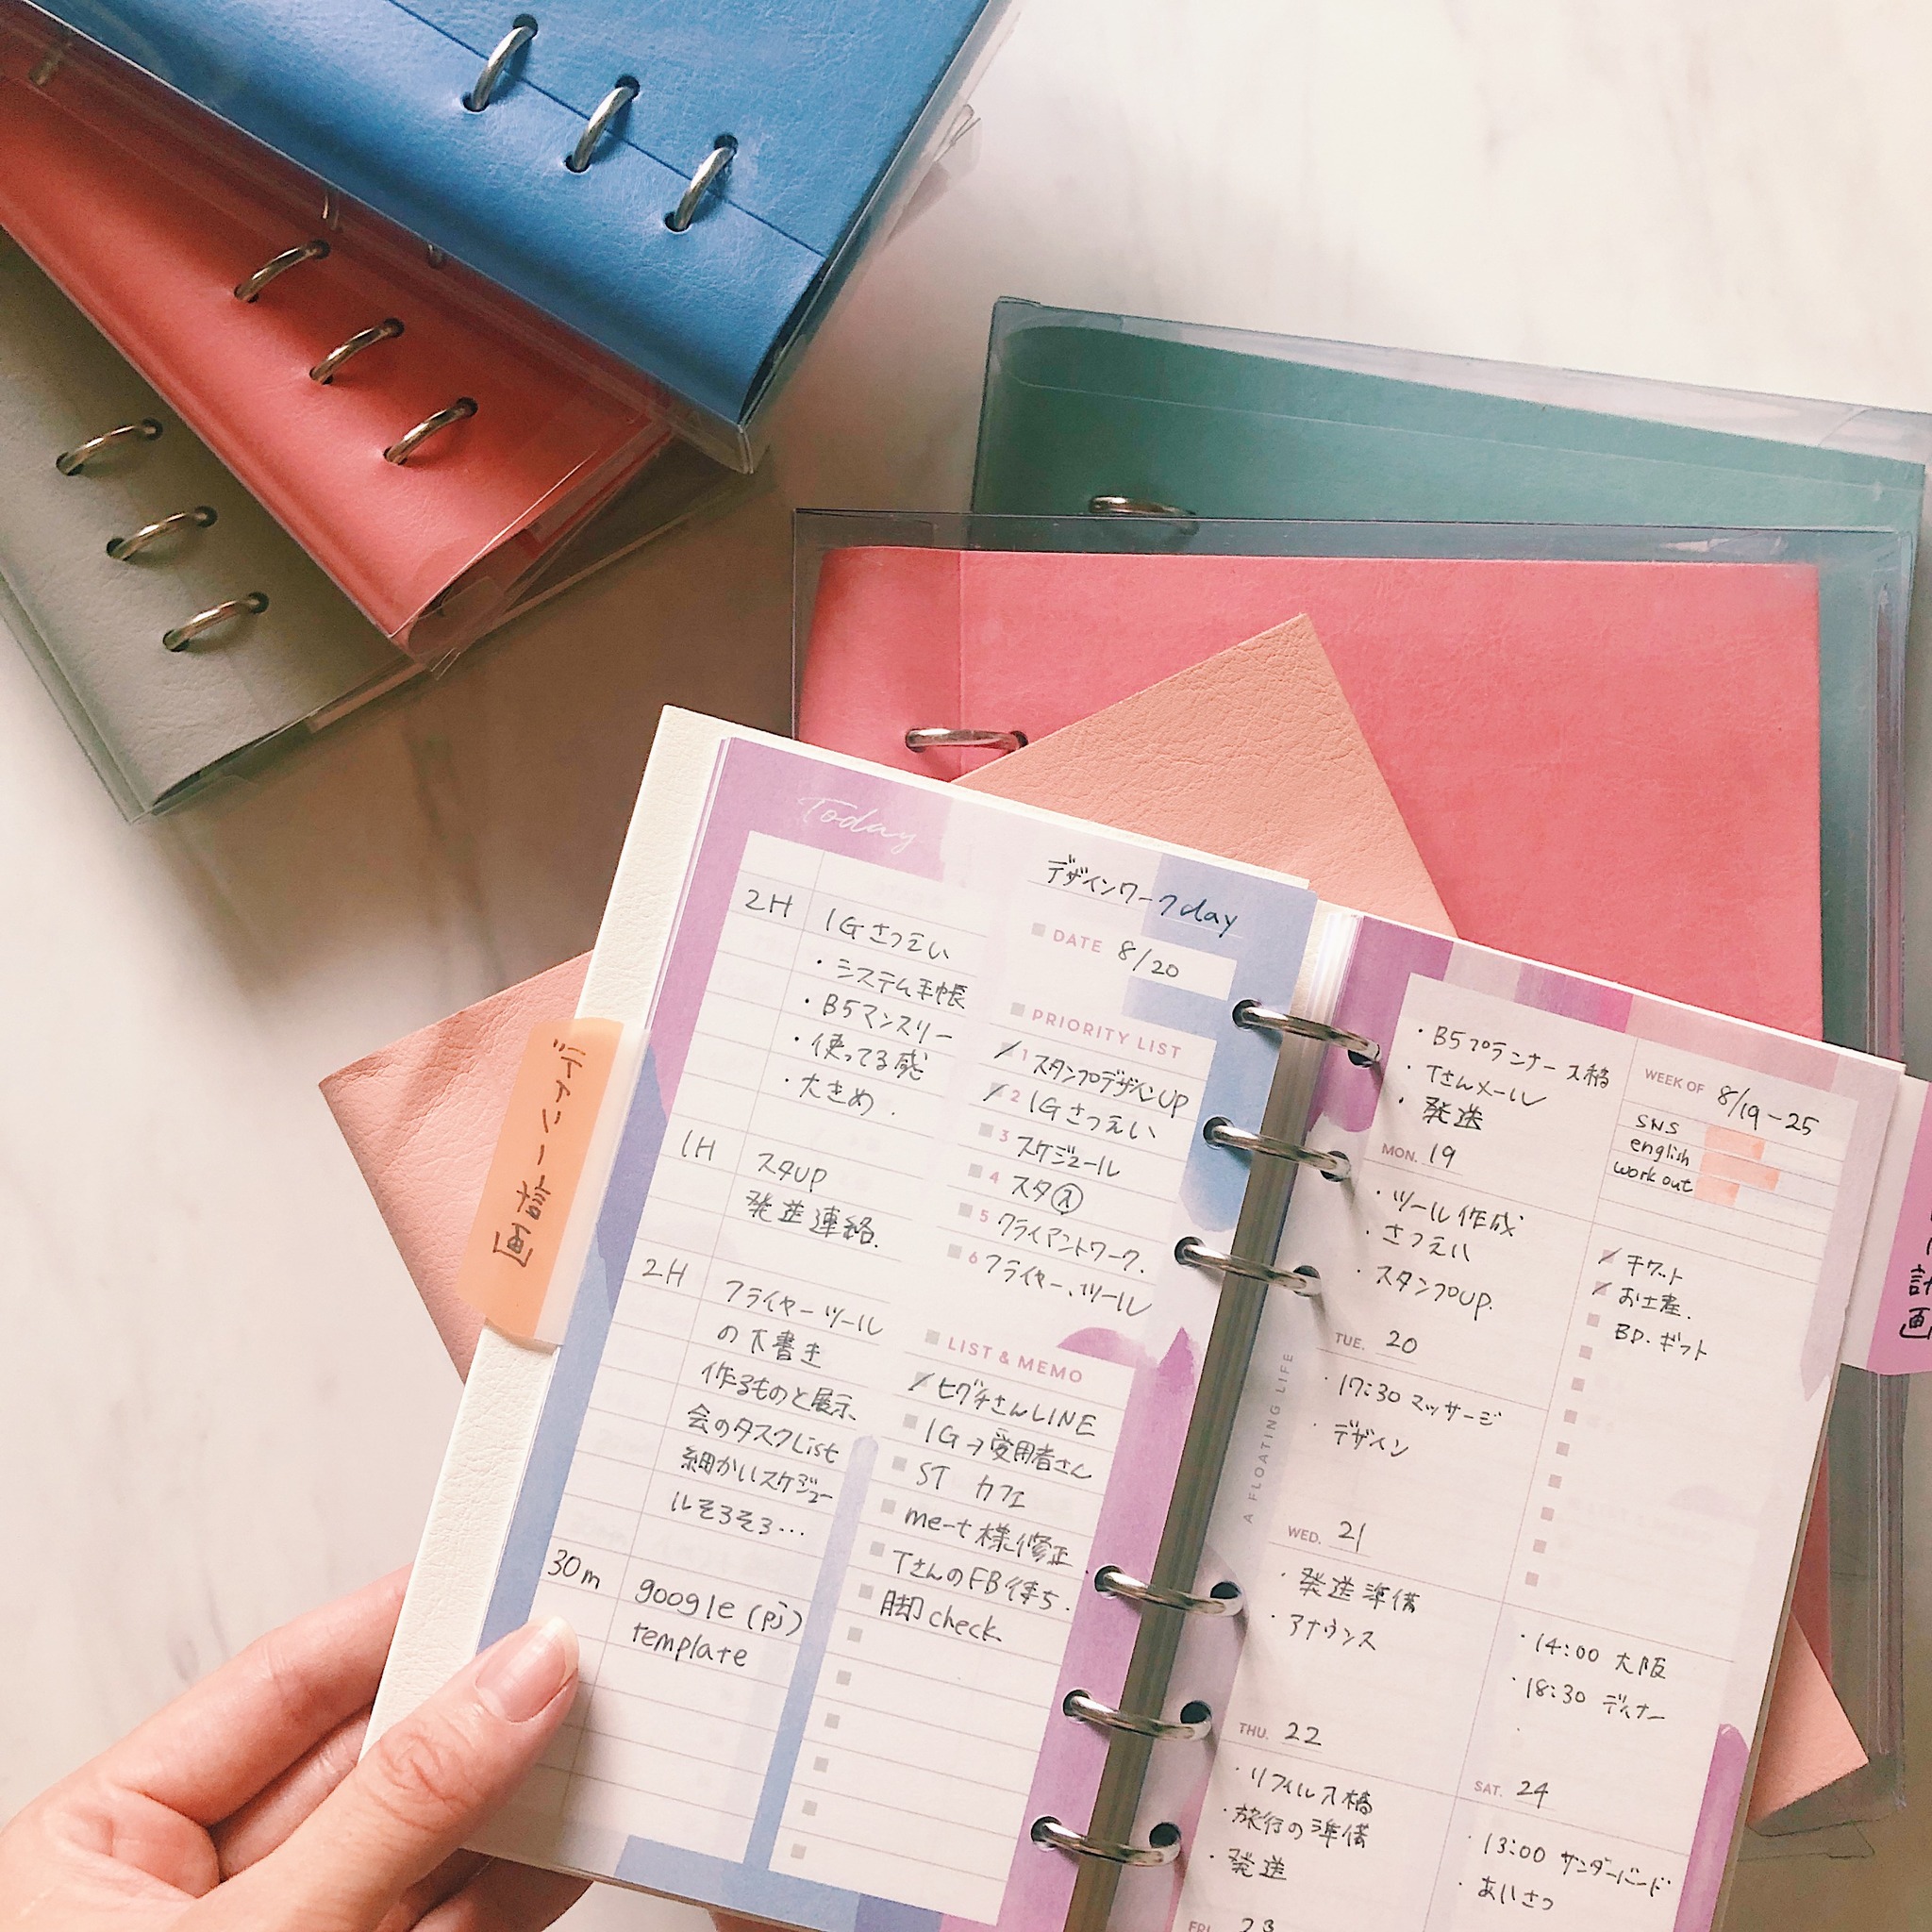 Today
デザインワークday
DATE 8/20
2H
IGさつえい
・システム手帳
・B5マンスリー
・使ってる感
・大きめ.
1H
スタUP
発送連絡.
2H
フライヤーツール
の下書き
作るものと展示
会のタスクList
細かいスケジュー
ルそろそろ…
30m
google (pj)
template
PRIORITY LIST
1 スタンプデザインUP
2 IGさつえい
3 スケジュール
4 スタ
5 クライアントワーク.
6 フライヤー、ツール
LIST & MEMO
ヒグチさんLINE
IG→愛用者さん
ST カフェ
me-t様修正
TさんのFB待ち.
脚check
デイリー計画
・B5プランナー入稿
・Tさんメール
・発送
MON. 19
・ツール作成
・さつえい
・スタンプUP.
TUE. 20
・17:30 マッサージ
・デザイン
WED. 21
・発送準備
・アナウンス
THU. 22
・リフィル入稿
・旅行の準備
・発送
FRI. 23
WEEK OF 8/19-25
SNS
english
work out
チケット
お土産.
BD.ギフト
・14:00 大阪
・18:30 ディナー
SAT. 24
・13:00 サンダーバード
・あいさつ
A FLOATING LIFE
計画